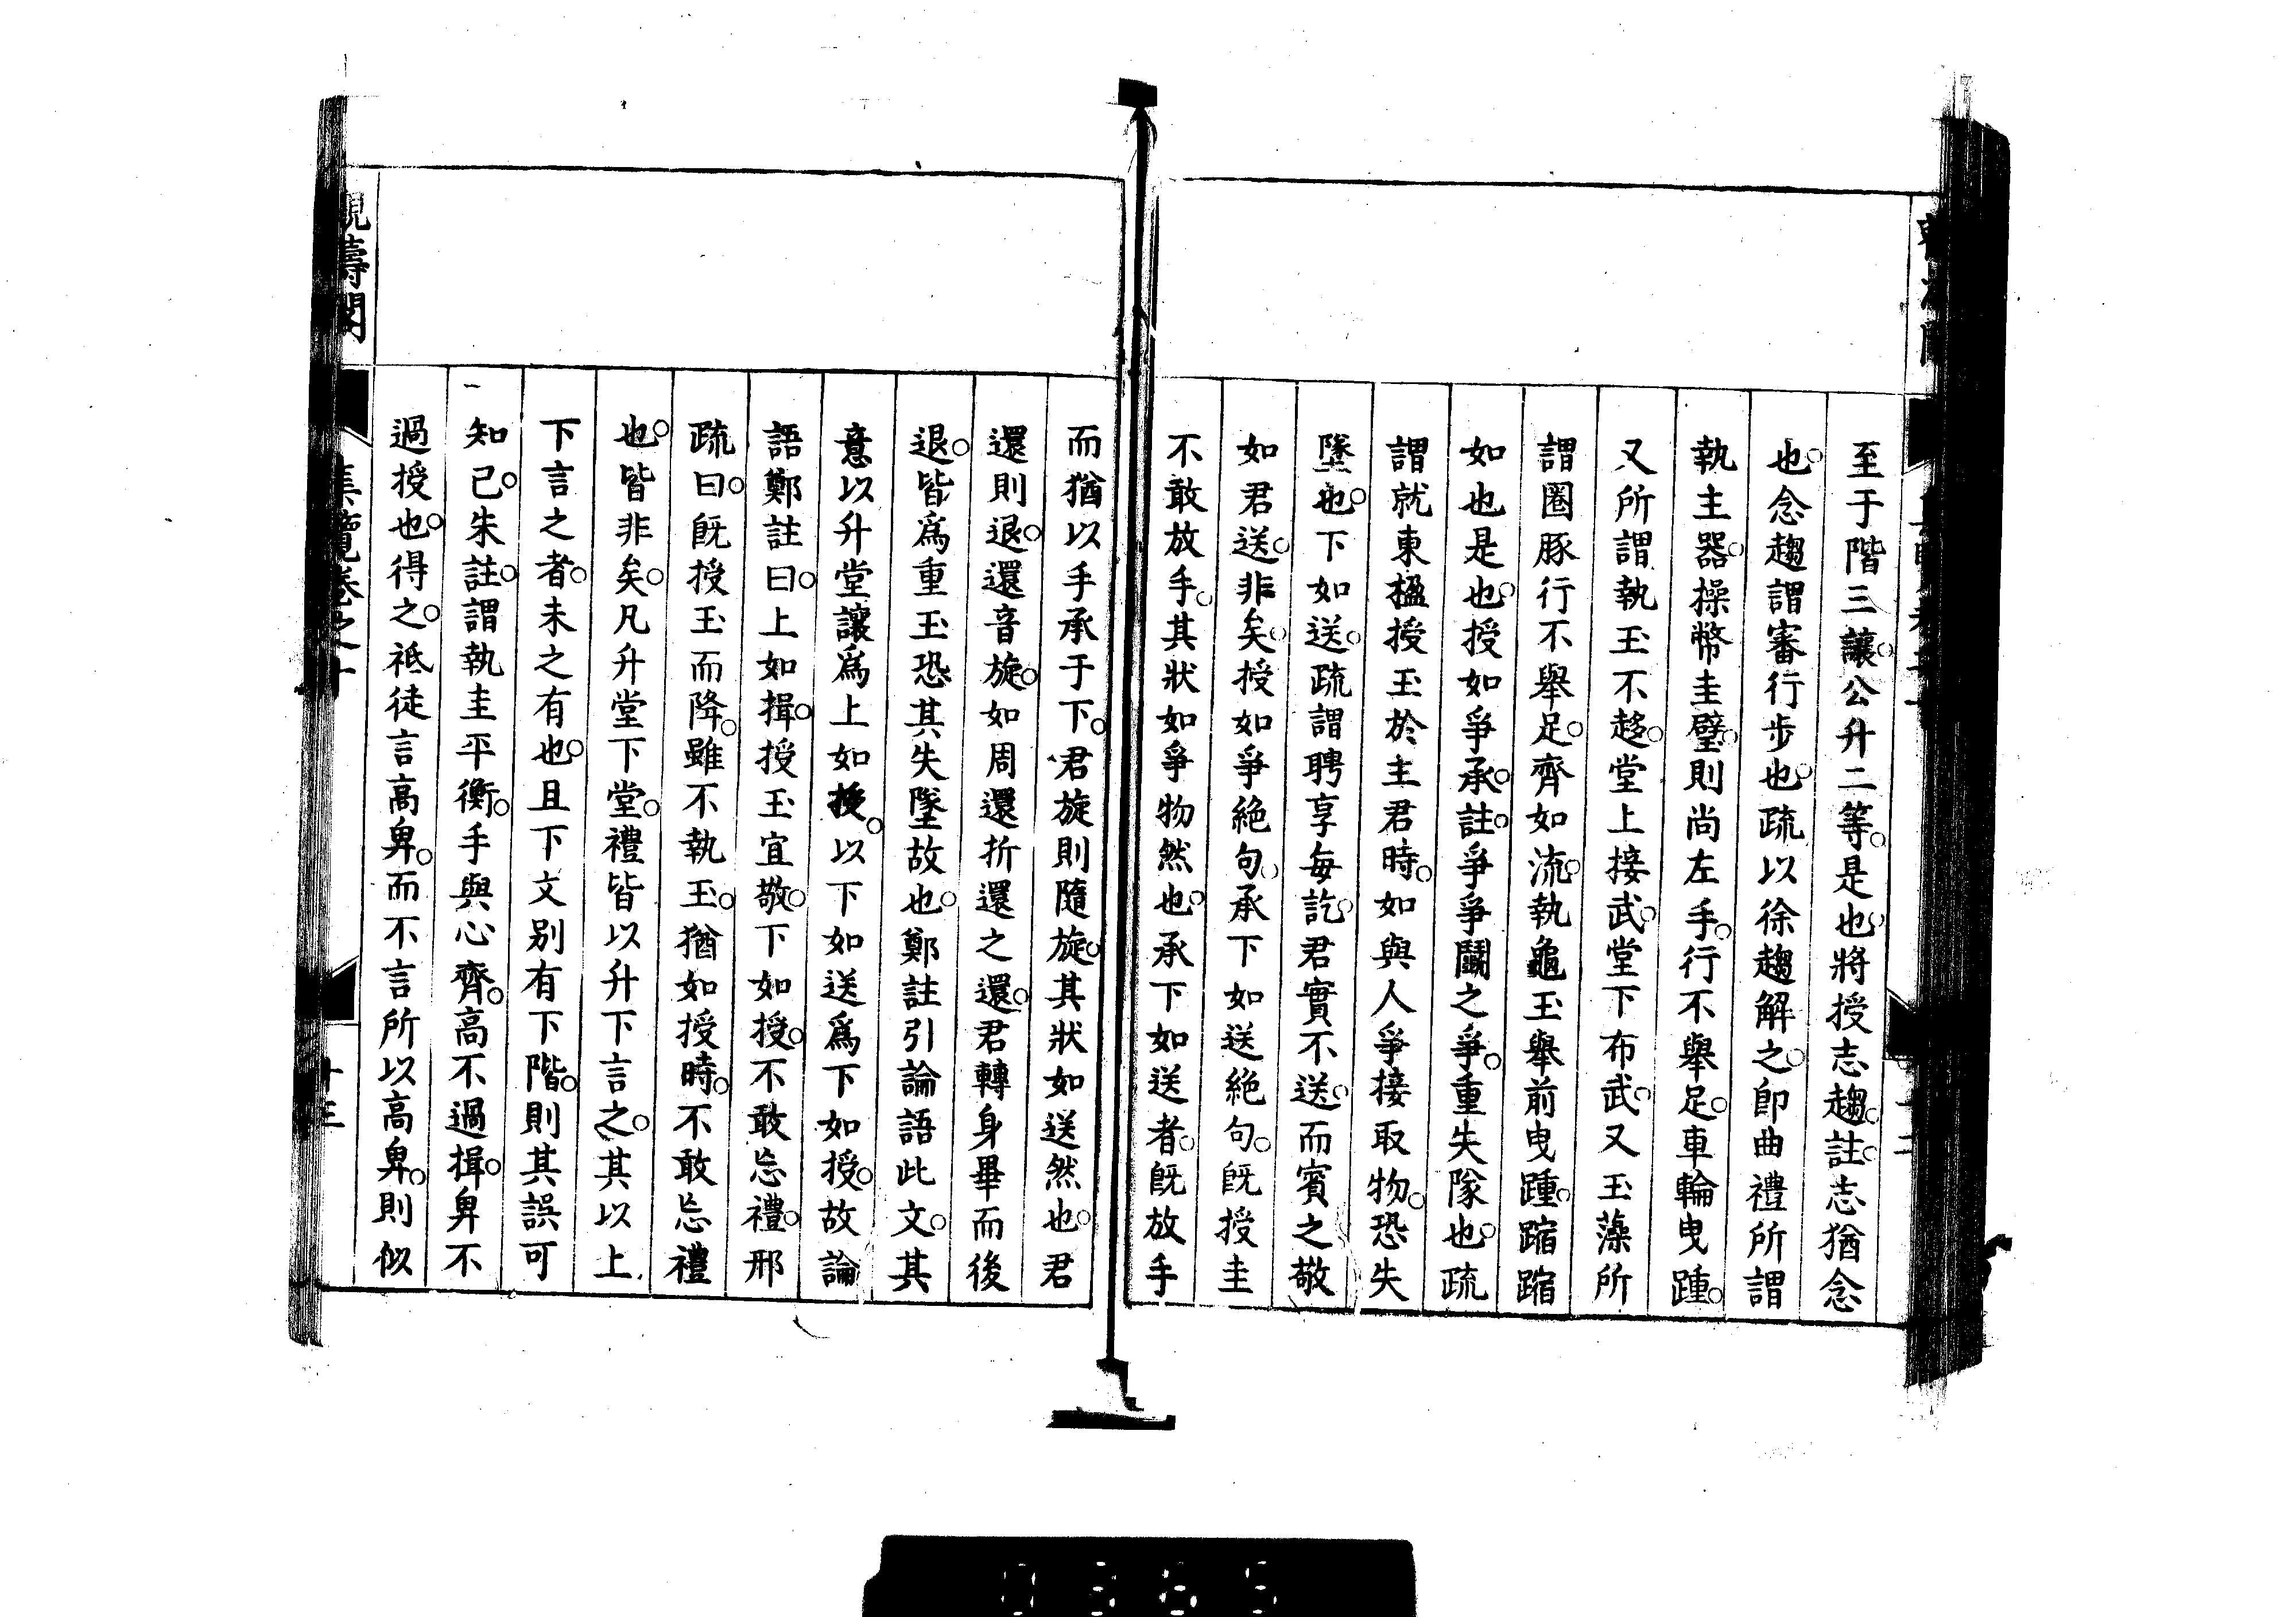 至于階三讓。公升二等。是也。將授志趨。註。志猶念
也。念趨謂審行步也。疏以徐趨解之。卽曲禮所謂
執主器。操幣圭璧。則尚左手。行不舉足。車輪曳踵。
又所謂執玉不趨。堂上接武。堂下布武。又玉藻所
謂圈豚行不舉足。齊如流。執龜玉舉前曳踵。蹜蹜
如也是也。授如爭承。註。爭爭鬭之爭。重失隊也。疏
謂就東楹授玉於主君時。如與人爭接取物。恐失
墜也。下如送。疏謂聘享每訖。君實不送。而賓之敬
如君送。非矣。授如爭絕句。承下如送絕句。旣授圭
不敢放手。其狀如爭物然也。承下如送者。旣放手
而猶以手承于下。君旋則隨旋。其狀如送然也。君
還則退。還音旋。如周還折還之還。君轉身畢而後
退。皆爲重玉恐其失墜故也。鄭註引論語此文。其
意以升堂讓爲上如授。以下如送爲下如授。故論
語鄭註曰。上如揖。授玉宜敬。下如授。不敢忘禮。邢
疏曰。旣授玉而降。雖不執玉。猶如授時。不敢忘禮
也。皆非矣。凡升堂下堂。禮皆以升下言之。其以上
下言之者。未之有也。且下文別有下階。則其誤可
知已。朱註。謂執圭平衡。手與心齊。高不過揖。卑不
過授也。得之。祗徒言高卑。而不言所以高卑。則似
觀濤閣
集覽卷之十
十三